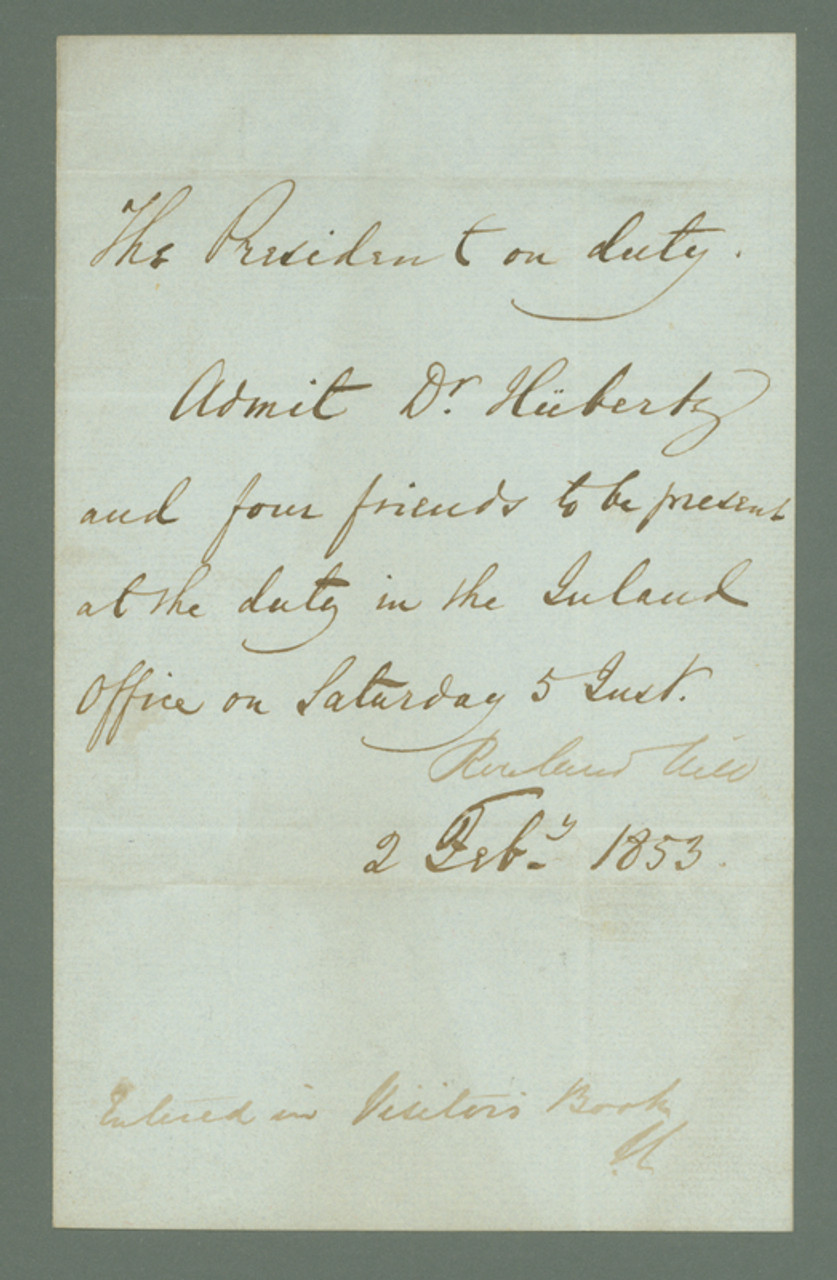 The President on duty.
Admit Dr. Hübertz
and four friends to be present
at the duty in the Inland
Office on Saturday 5 Inst.
Rowland Hill
2 Feby. 1853.
Entered in Visitors Book